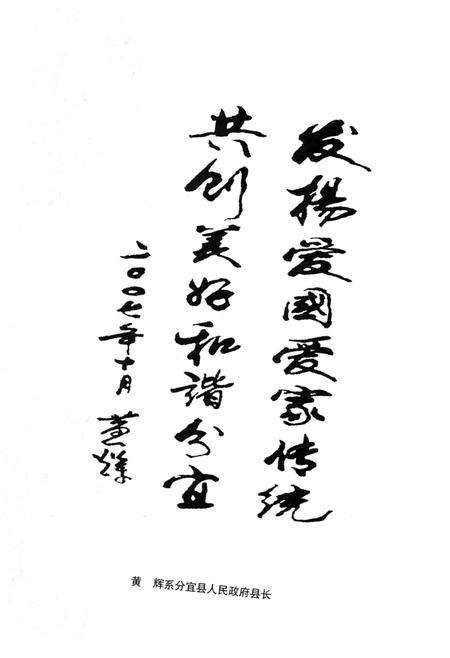 发揚愛國愛家传统
共创美好和谐分宜
二〇〇七年十月 黄辉
黄　辉系分宜县人民政府县长